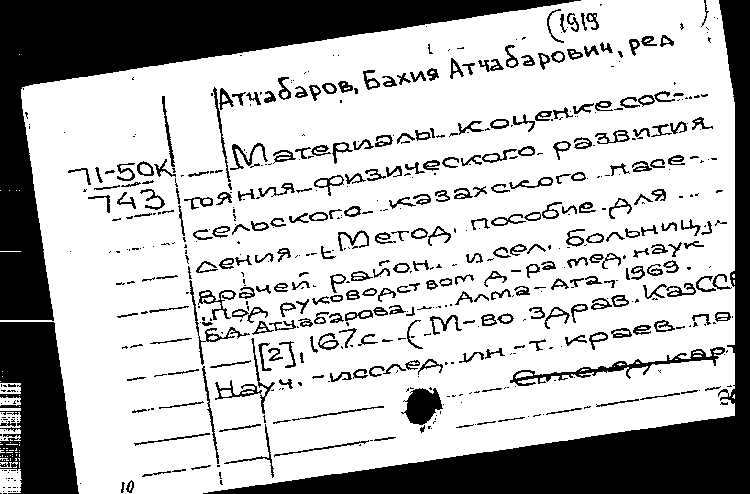 (1919
Атчабаров, Бахия Атчабарович, ред
71-50К
743
Материалы к оценке сос-
тояния физического развития
сельского казахского насе-
ления. [Метод. пособие для
врачей район. и сел. больниц].
"Под руководством д-ра мед. наук
Б.А. Атчабарова". Алма-Ата, 1969.
[2], 167с. (М-во здрав. КазССР
Науч.-исслед. ин-т. краев. па
10